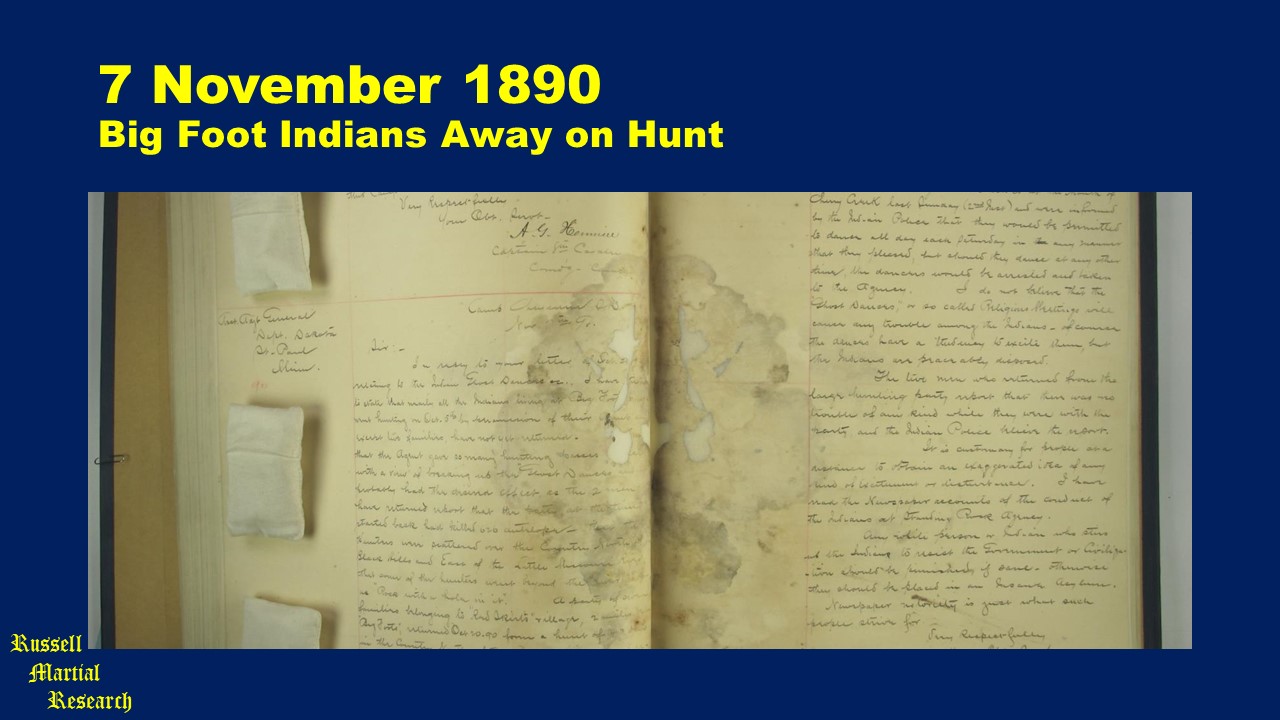 7 November 1890
Big Foot Indians Away on Hunt
Very Respectfully
Your Obt. Servt.
A. G. Hennisee
Captain 8th
Comdg.
Asst. Adjt General
Dept. Dakota
St. Paul
Minn.
Sir:-
In reply to your letter of
relating to the Indian Ghost Dances I have
to state that nearly all the Indians living at Big Foot
went hunting on Oct. 5th by permission of their
have not yet returned.
that the Agent gave so many hunting passes
with a view of breaking up the Ghost Dances
probably had the desired effect as the
have returned report that the party at the
started back had killed 600 antelope
hunters were scattered over the Country
Black Hills and East of the Little Missouri
that some of the hunters went beyond the
as Pass with a hole in it". A party of
families belonging to "Red Skirts" village,
Big Foots returned Oct 30.90 from a hunt
in the Country
Cherry Creek last Sunday (2nd Inst) and were informed
by the Indian Police that they would be permitted
to dance all day each Saturday in any manner
that they pleased, but should they dance at any other
time, the dancers would be arrested and taken
to the Agency. I do not believe that the
"Ghost Dances," or so called Religious Meetings will
cause any trouble among the Indians - of course
the dances have a tendency to excite them, but
the Indians are peaceably disposed.
The five men who returned from the
large hunting party report that there was no
trouble of any kind while they were with the
party, and the Indian Police believe the report.
It is customary for people at a
distance to obtain an exaggerated idea of any
kind of excitement or disturbance. I have
read the Newspaper accounts of the conduct of
the Indians at Standing Rock Agency.
Any white person or Indian who stirs
up the Indians to resist the Government or Civiliza-
tion should be punished if sane - otherwise
they should be placed in an Insane Asylum.
Newspaper notoriety is just what such
people strive for
Very Respectfully
Russell
Martial
Research